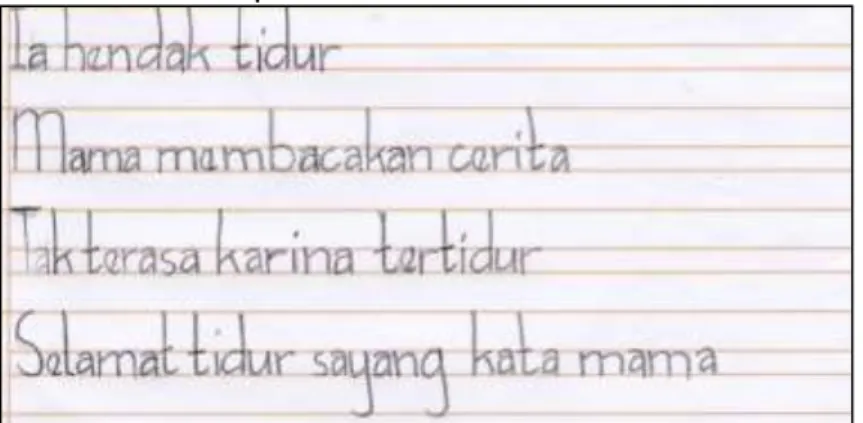 Ia hendak tidur
Mama membacakan cerita
Tak terasa karina tertidur
Selamat tidur sayang kata mama